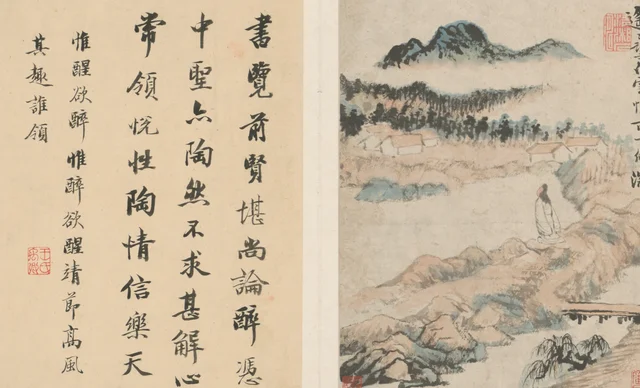 書覽前賢堪尚論醉憑
中聖亦陶然不求甚解心
常領悅性陶情信樂天
惟醒欲醉惟醉欲醒靖節高風
其趣誰領